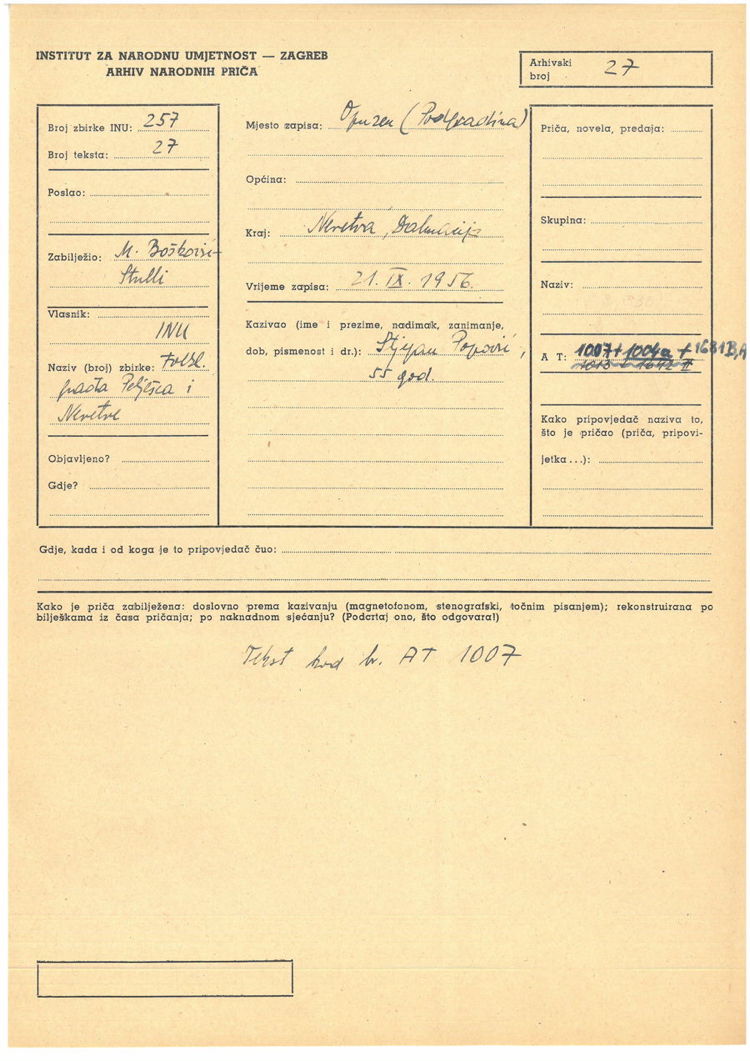 INSTITUT ZA NARODNU UMJETNOST — ZAGREB
ARHIV NARODNIH PRIČA
Arhivski
broj 27
Broj zbirke INU: 257
Broj teksta: 27
Poslao:
Zabilježio: M. Bošković-
Stulli
Vlasnik:
INU
Naziv (broj) zbirke: Folkl.
građa Pelješca i
Neretve
Objavljeno?
Gdje?
Mjesto zapisa: Opuzen (Podgradina)
Općina:
Kraj: Neretva, Dalmacija
Vrijeme zapisa: 21. IX. 1956.
Kazivao (ime i prezime, nadimak, zanimanje,
dob, pismenost i dr.): Stjepan Popović,
55 god.
Priča, novela, predaja:
Skupina:
Naziv:
A T: 1007 + 1004a + 1681B,A
1013 + 1642 II
Kako pripovjedač naziva to,
što je pričao (priča, pripovi-
jetka...):
Gdje, kada i od koga je to pripovjedač čuo:
Kako je priča zabilježena: doslovno prema kazivanju (magnetofonom, stenografski, točnim pisanjem); rekonstruirana po
bilješkama iz časa pričanja; po naknadnom sjećanju? (Podcrtaj ono, što odgovara!)
Tekst kod br. AT 1007